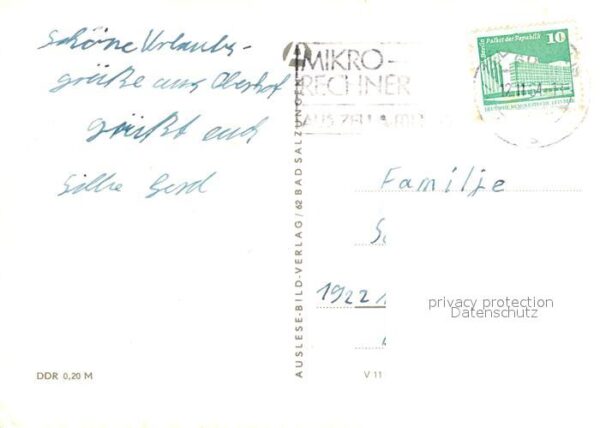 Schöne Urlaubs-
grüße aus Oberhof
grüßt euch
Silke Gerd
MIKRO-
RECHNER
AUS ZELLA-MEHLIS
Berlin, Palast der Republik 10
DEUTSCHE DEMOKRATISCHE REPUBLIK
12.11.84
AUSLESE-BILD-VERLAG / 62 BAD SALZUNGEN
Familie
S
1922
privacy protection
Datenschutz
DDR 0,20 M
V 11